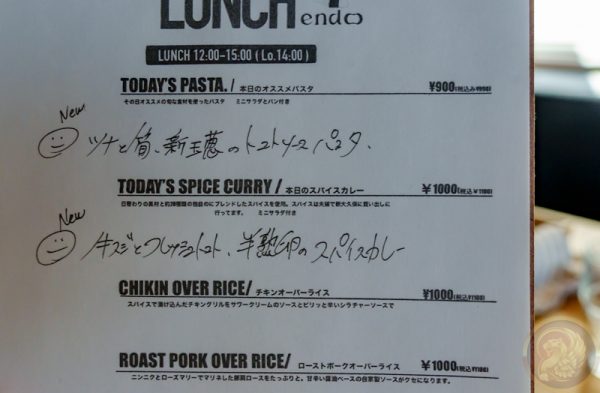 LUNCH
endo
LUNCH 12:00-15:00 ( Lo.14:00 )
TODAY'S PASTA. / 本日のオススメパスタ ¥900(税込み¥990)
その日オススメの旬な食材を使ったパスタ ミニサラダとパン付き
New
ツナと筍、新玉葱のトマトソースパスタ、
TODAY'S SPICE CURRY / 本日のスパイスカレー ¥1000(税込¥1100)
日替わりの具材と約20種類の独自のにブレンドしたスパイスを使用。スパイスは夫婦で新大久保に買い出しに
行ってます。 ミニサラダ付き
New
牛スジとフレッシュトマト、半熟卵のスパイスカレー
CHIKIN OVER RICE/ チキンオーバーライス ¥1000(税込¥1100)
スパイスで漬け込んだチキングリルをサワークリームのソースとピリッと辛いシラチャーソースで
ROAST PORK OVER RICE/ ローストポークオーバーライス ¥1000(税込¥1100)
ニンニクとローズマリーでマリネした豚肩ロースをたっぷりと。甘辛い醤油ベースの自家製ソースがクセになります。